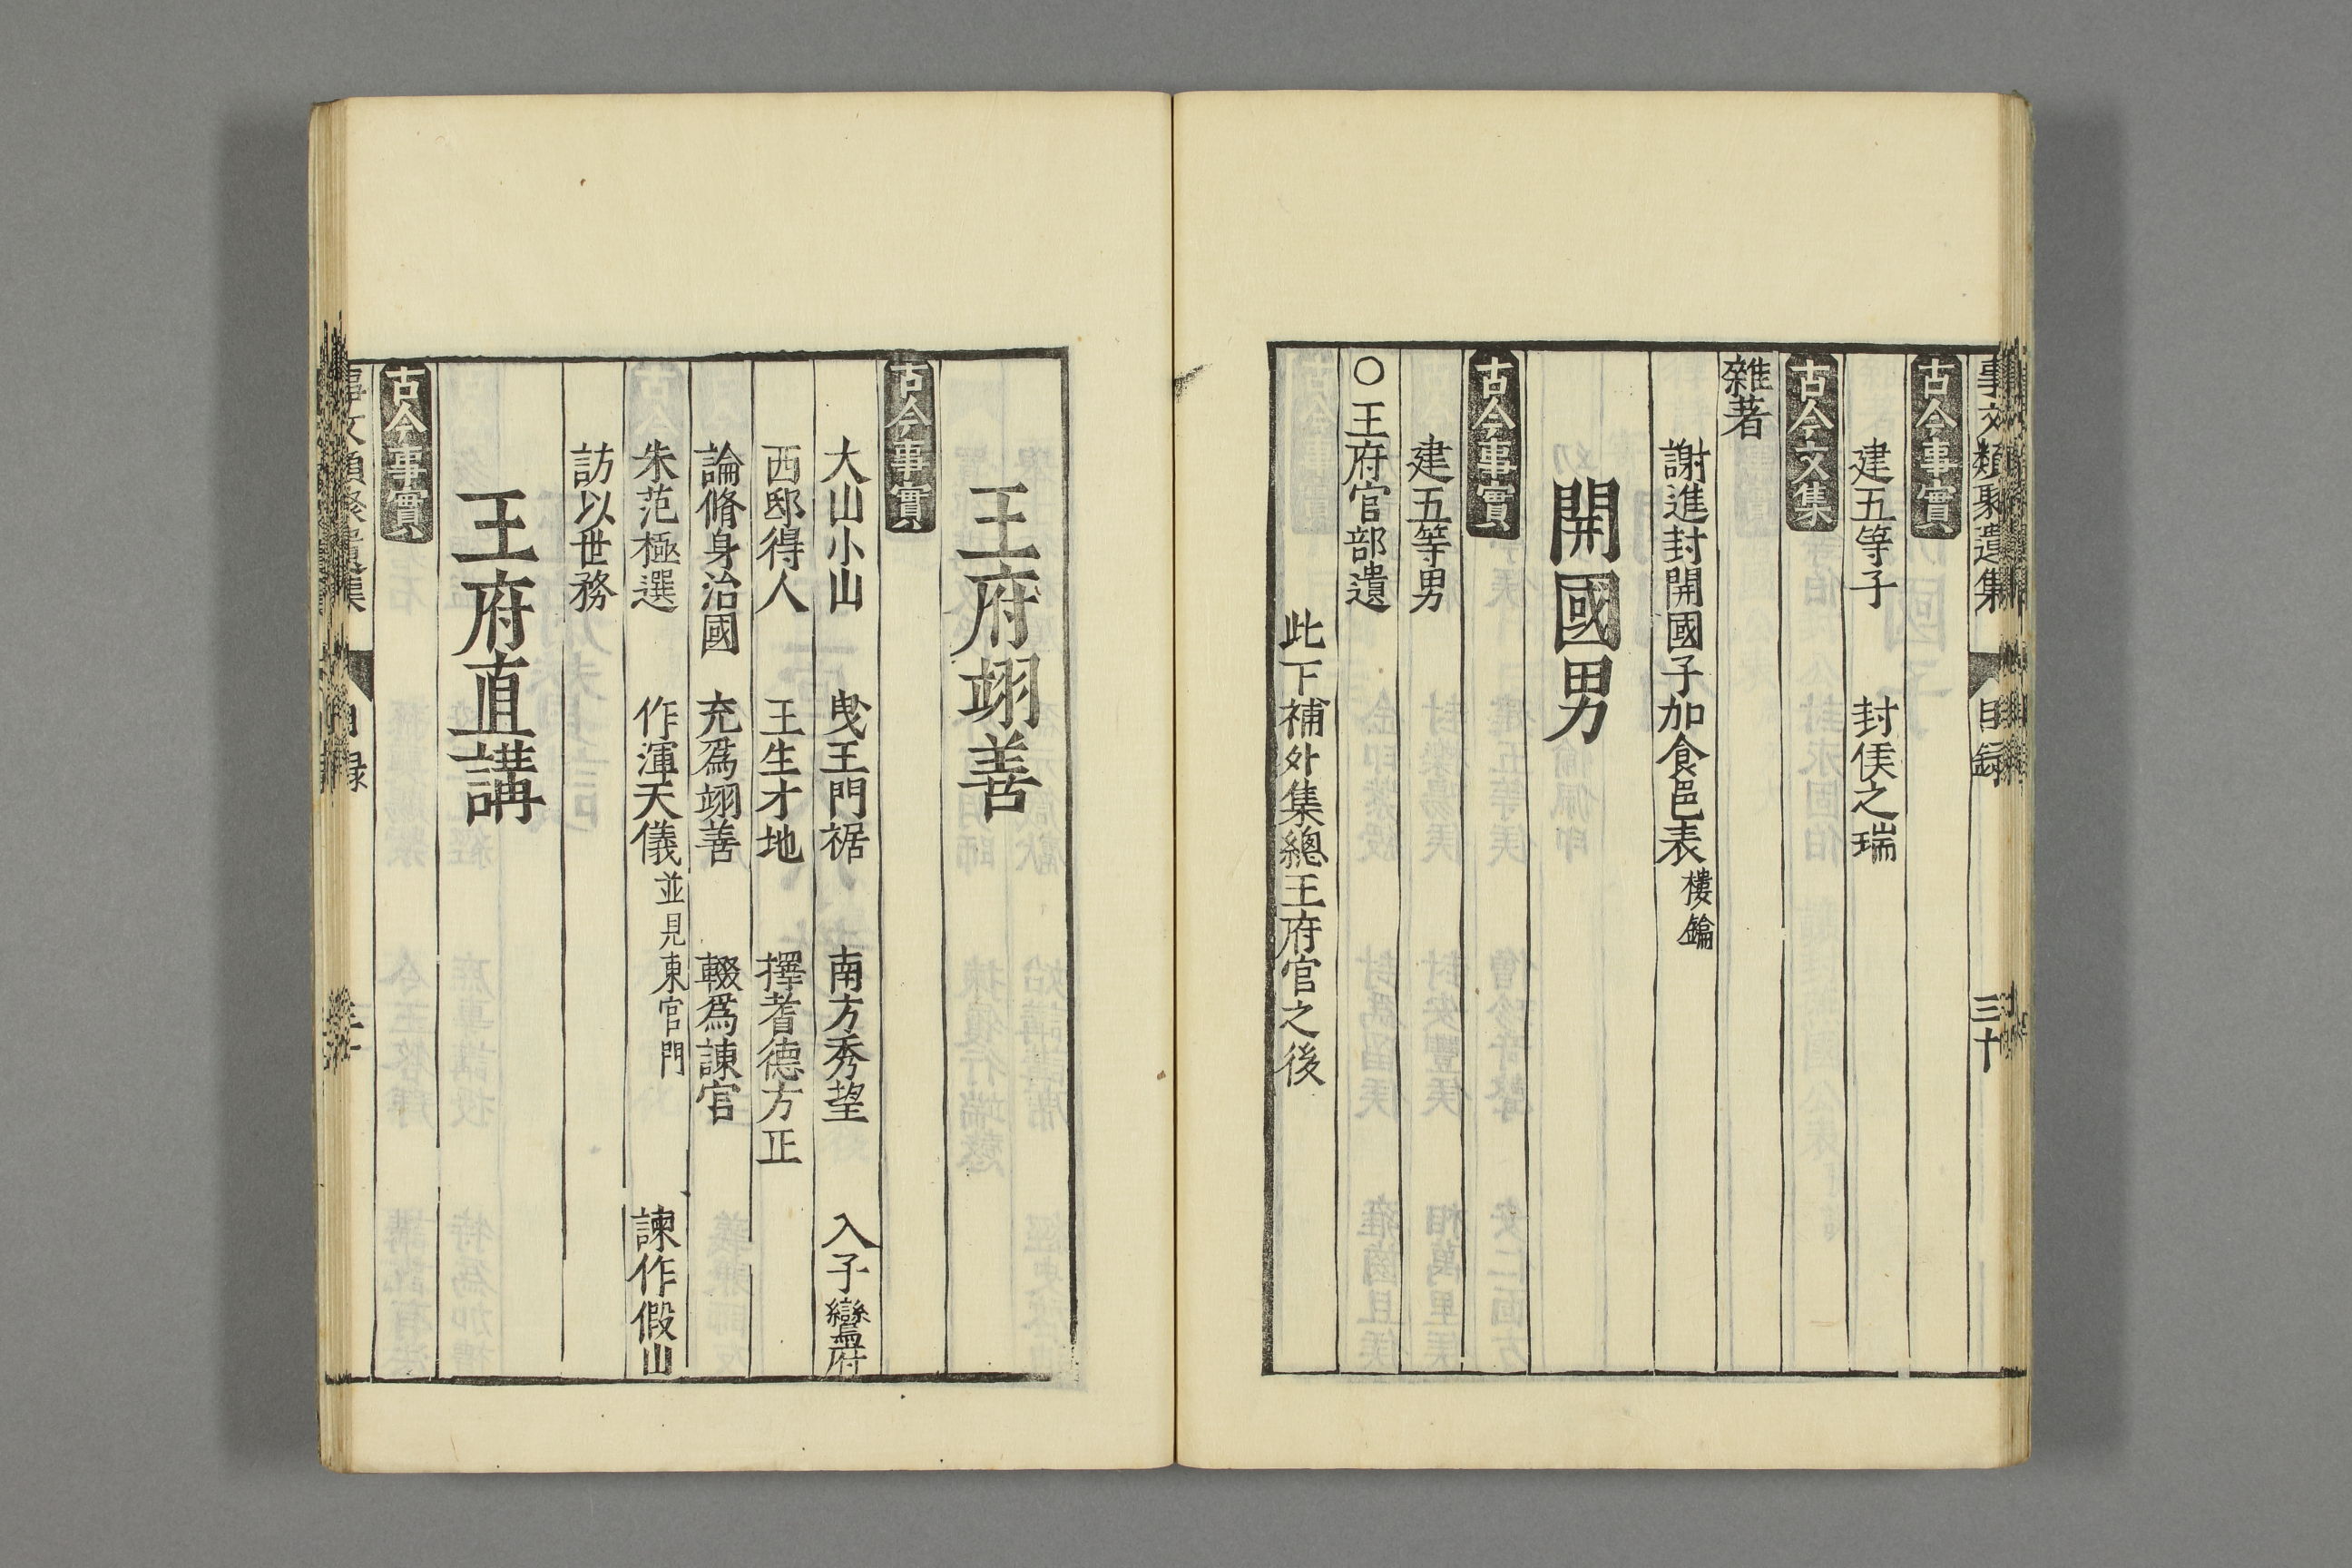 事文類聚遺集 目録 三十
古今事實
建五等子 封侯之瑞
古今文集
雜著
謝進封開國子加食邑表 樓鑰
開國男
古今事實
建五等男
○王府官部遺
此下補外集總王府官之後
王府翊善
古今事實
大山小山 曳王門裾 南方秀望 入子鸞府
西邸得人 王生才地 擇耆德方正
論脩身治國 充爲翊善 輟爲諫官
朱范極選 作渾天儀 並見東宫門 諫作假山
訪以世務
王府直講
古今事實
事文類聚遺集 目録